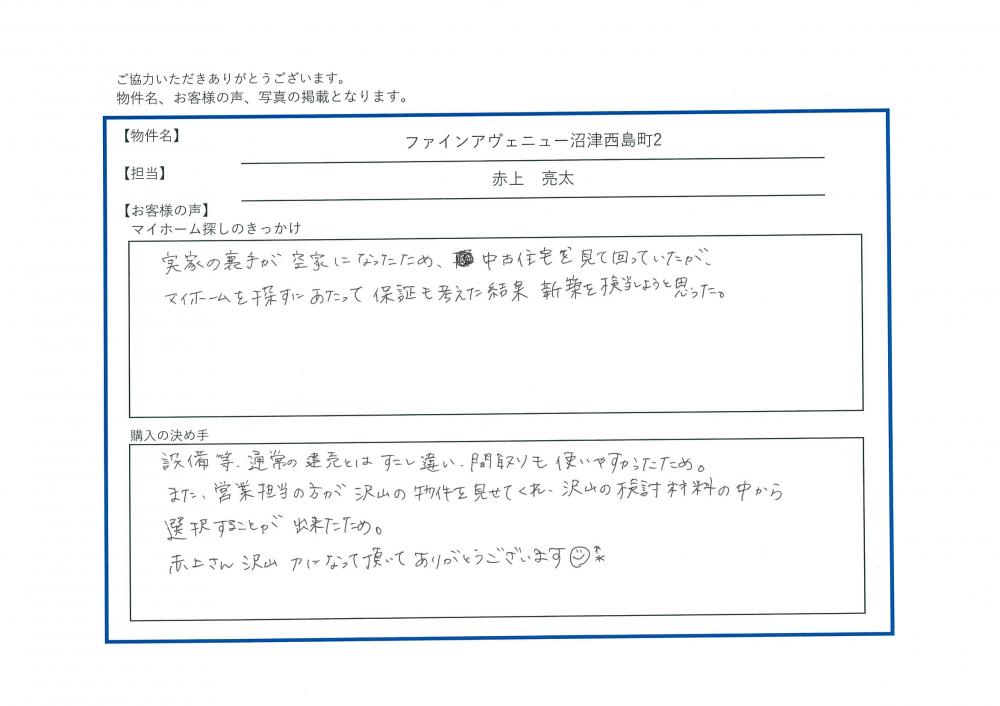 ご協力いただきありがとうございます。
物件名、お客様の声、写真の掲載となります。
【物件名】 ファインアヴェニュー沼津西島町2
【担当】 赤上 亮太
【お客様の声】
マイホーム探しのきっかけ
実家の裏手が空家になったため、中古住宅を見て回っていたが、
マイホームを探すにあたって保証も考えた結果 新築を検当しようと思った。
購入の決め手
設備等、通常の建売とはすこし違い、間取りも使いやすかったため。
また、営業担当の方が沢山の物件を見せてくれ、沢山の検討材料の中から
選択することが出来たため。
赤上さん沢山力になって頂いてありがとうございます☺